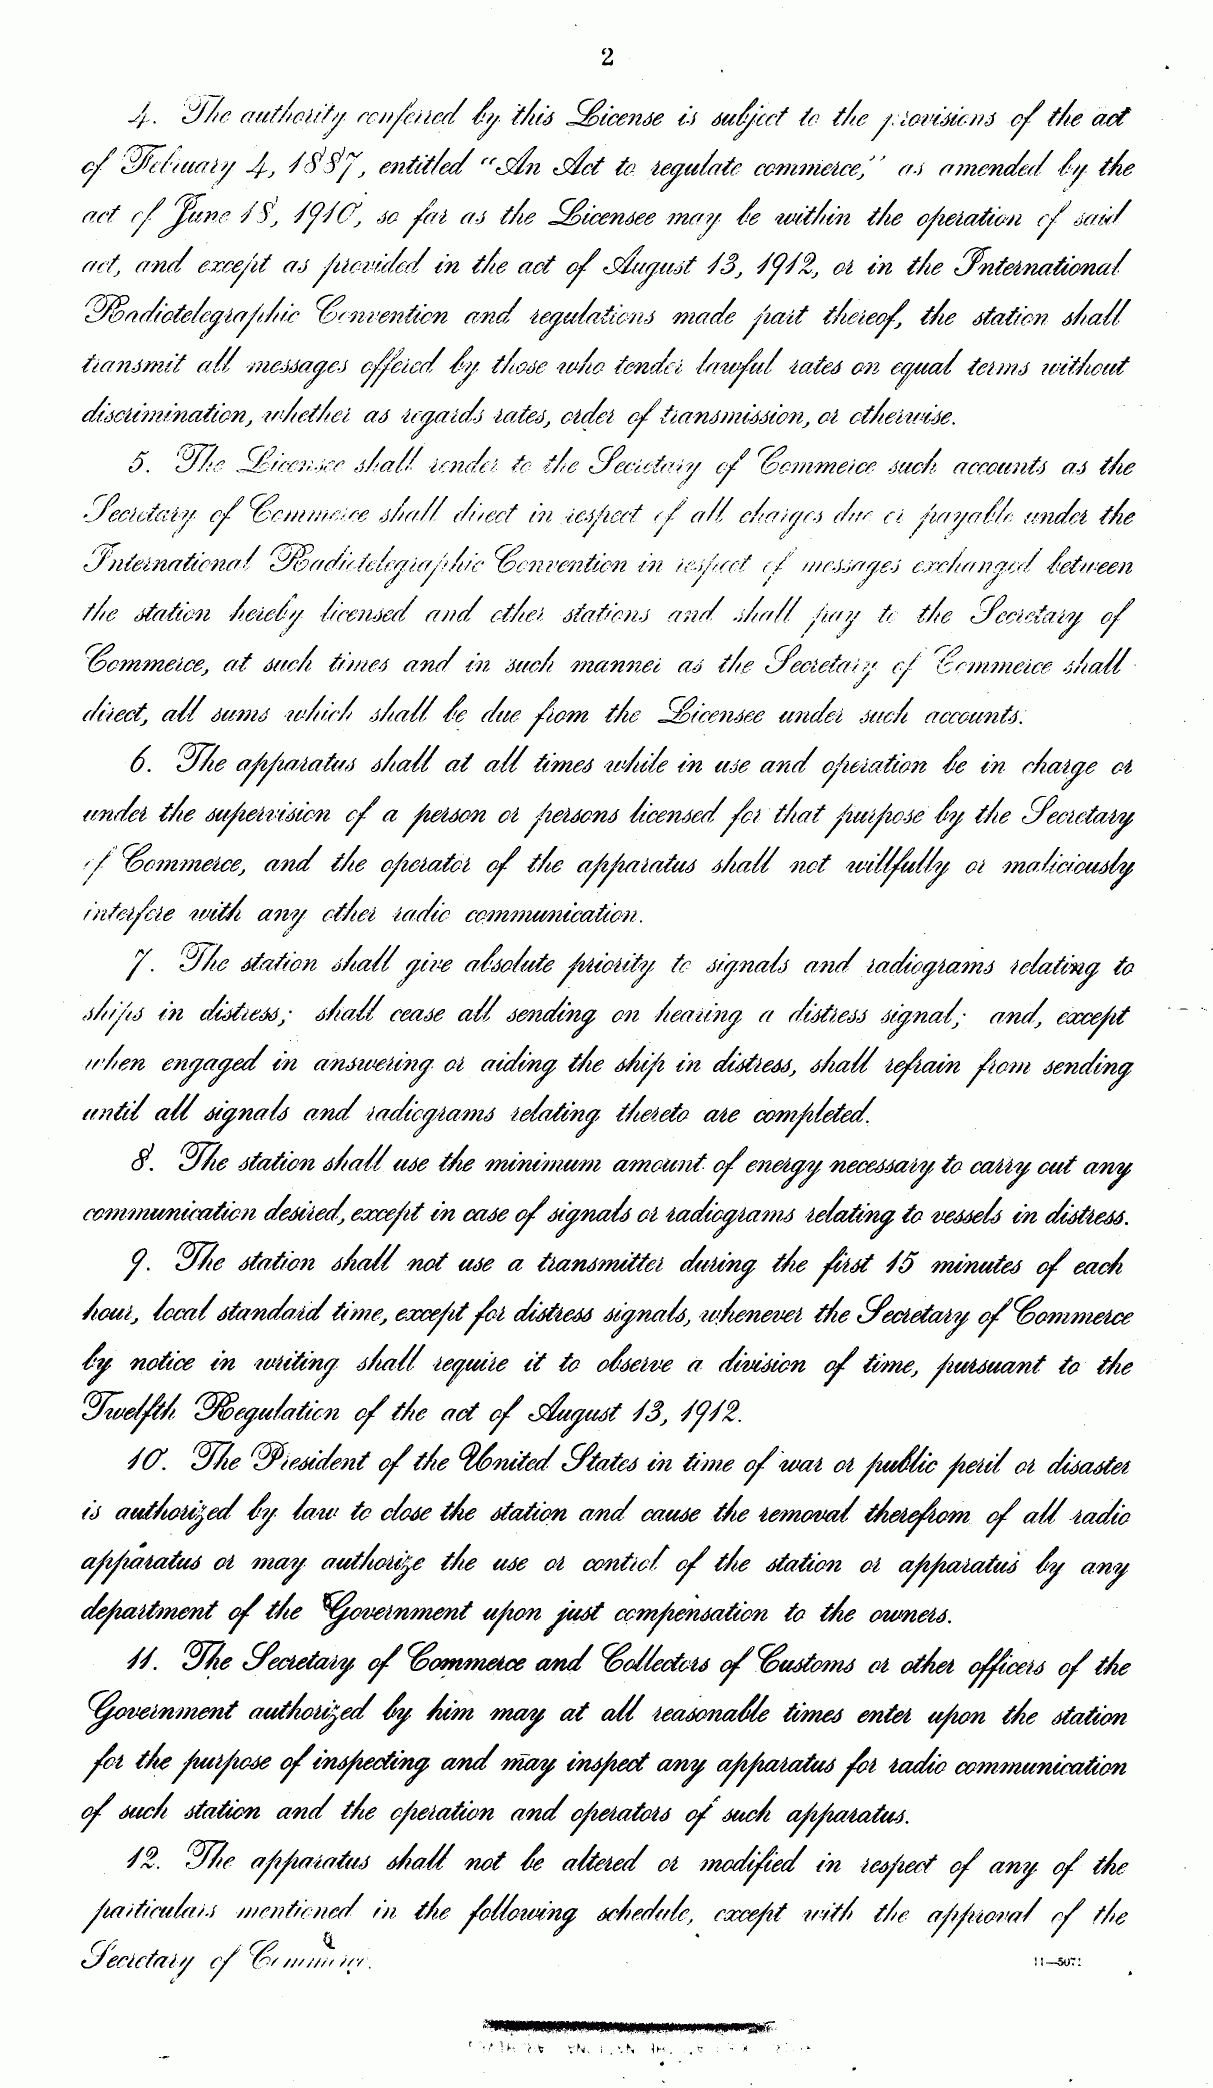 2
4. The authority conferred by this License is subject to the provisions of the act
of February 4, 1887, entitled "An Act to regulate commerce," as amended by the
act of June 18, 1910, so far as the Licensee may be within the operation of said
act, and except as provided in the act of August 13, 1912, or in the International
Radiotelegraphic Convention and regulations made part thereof, the station shall
transmit all messages offered by those who tender lawful rates on equal terms without
discrimination, whether as regards rates, order of transmission, or otherwise.
5. The Licensee shall render to the Secretary of Commerce such accounts as the
Secretary of Commerce shall direct in respect of all charges due or payable under the
International Radiotelegraphic Convention in respect of messages exchanged between
the station hereby licensed and other stations and shall pay to the Secretary of
Commerce, at such times and in such manner as the Secretary of Commerce shall
direct, all sums which shall be due from the Licensee under such accounts.
6. The apparatus shall at all times while in use and operation be in charge or
under the supervision of a person or persons licensed for that purpose by the Secretary
of Commerce, and the operator of the apparatus shall not willfully or maliciously
interfere with any other radio communication.
7. The station shall give absolute priority to signals and radiograms relating to
ships in distress; shall cease all sending on hearing a distress signal; and, except
when engaged in answering or aiding the ship in distress, shall refrain from sending
until all signals and radiograms relating thereto are completed.
8. The station shall use the minimum amount of energy necessary to carry out any
communication desired, except in case of signals or radiograms relating to vessels in distress.
9. The station shall not use a transmitter during the first 15 minutes of each
hour, local standard time, except for distress signals, whenever the Secretary of Commerce
by notice in writing shall require it to observe a division of time, pursuant to the
Twelfth Regulation of the act of August 13, 1912.
10. The President of the United States in time of war or public peril or disaster
is authorized by law to close the station and cause the removal therefrom of all radio
apparatus or may authorize the use or control of the station or apparatus by any
department of the Government upon just compensation to the owners.
11. The Secretary of Commerce and Collectors of Customs or other officers of the
Government authorized by him may at all reasonable times enter upon the station
for the purpose of inspecting and may inspect any apparatus for radio communication
of such station and the operation and operators of such apparatus.
12. The apparatus shall not be altered or modified in respect of any of the
particulars mentioned in the following schedule, except with the approval of the
Secretary of Commerce.
11—5071